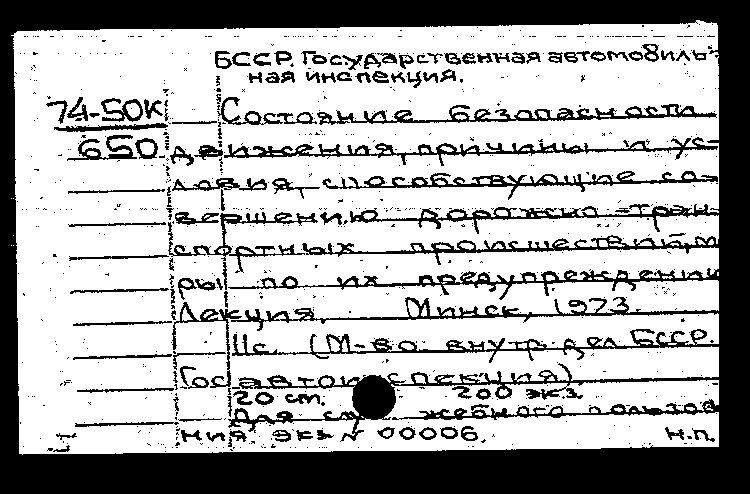 БССР. Государственная автомобиль-
ная инспекция.
74-50К
650
Состояние безопасности
движения, причины и ус-
ловия, способствующие со-
вершению дорожно-тран-
спортных происшествий, м
ры по их предупреждению
Лекция. Минск, 1973.
11с. (М-во внутр. дел БССР.
Госавтоинспекция).
20 см. 200 экз.
Для служебного пользов
ния. Экз № 00006.
н.п.